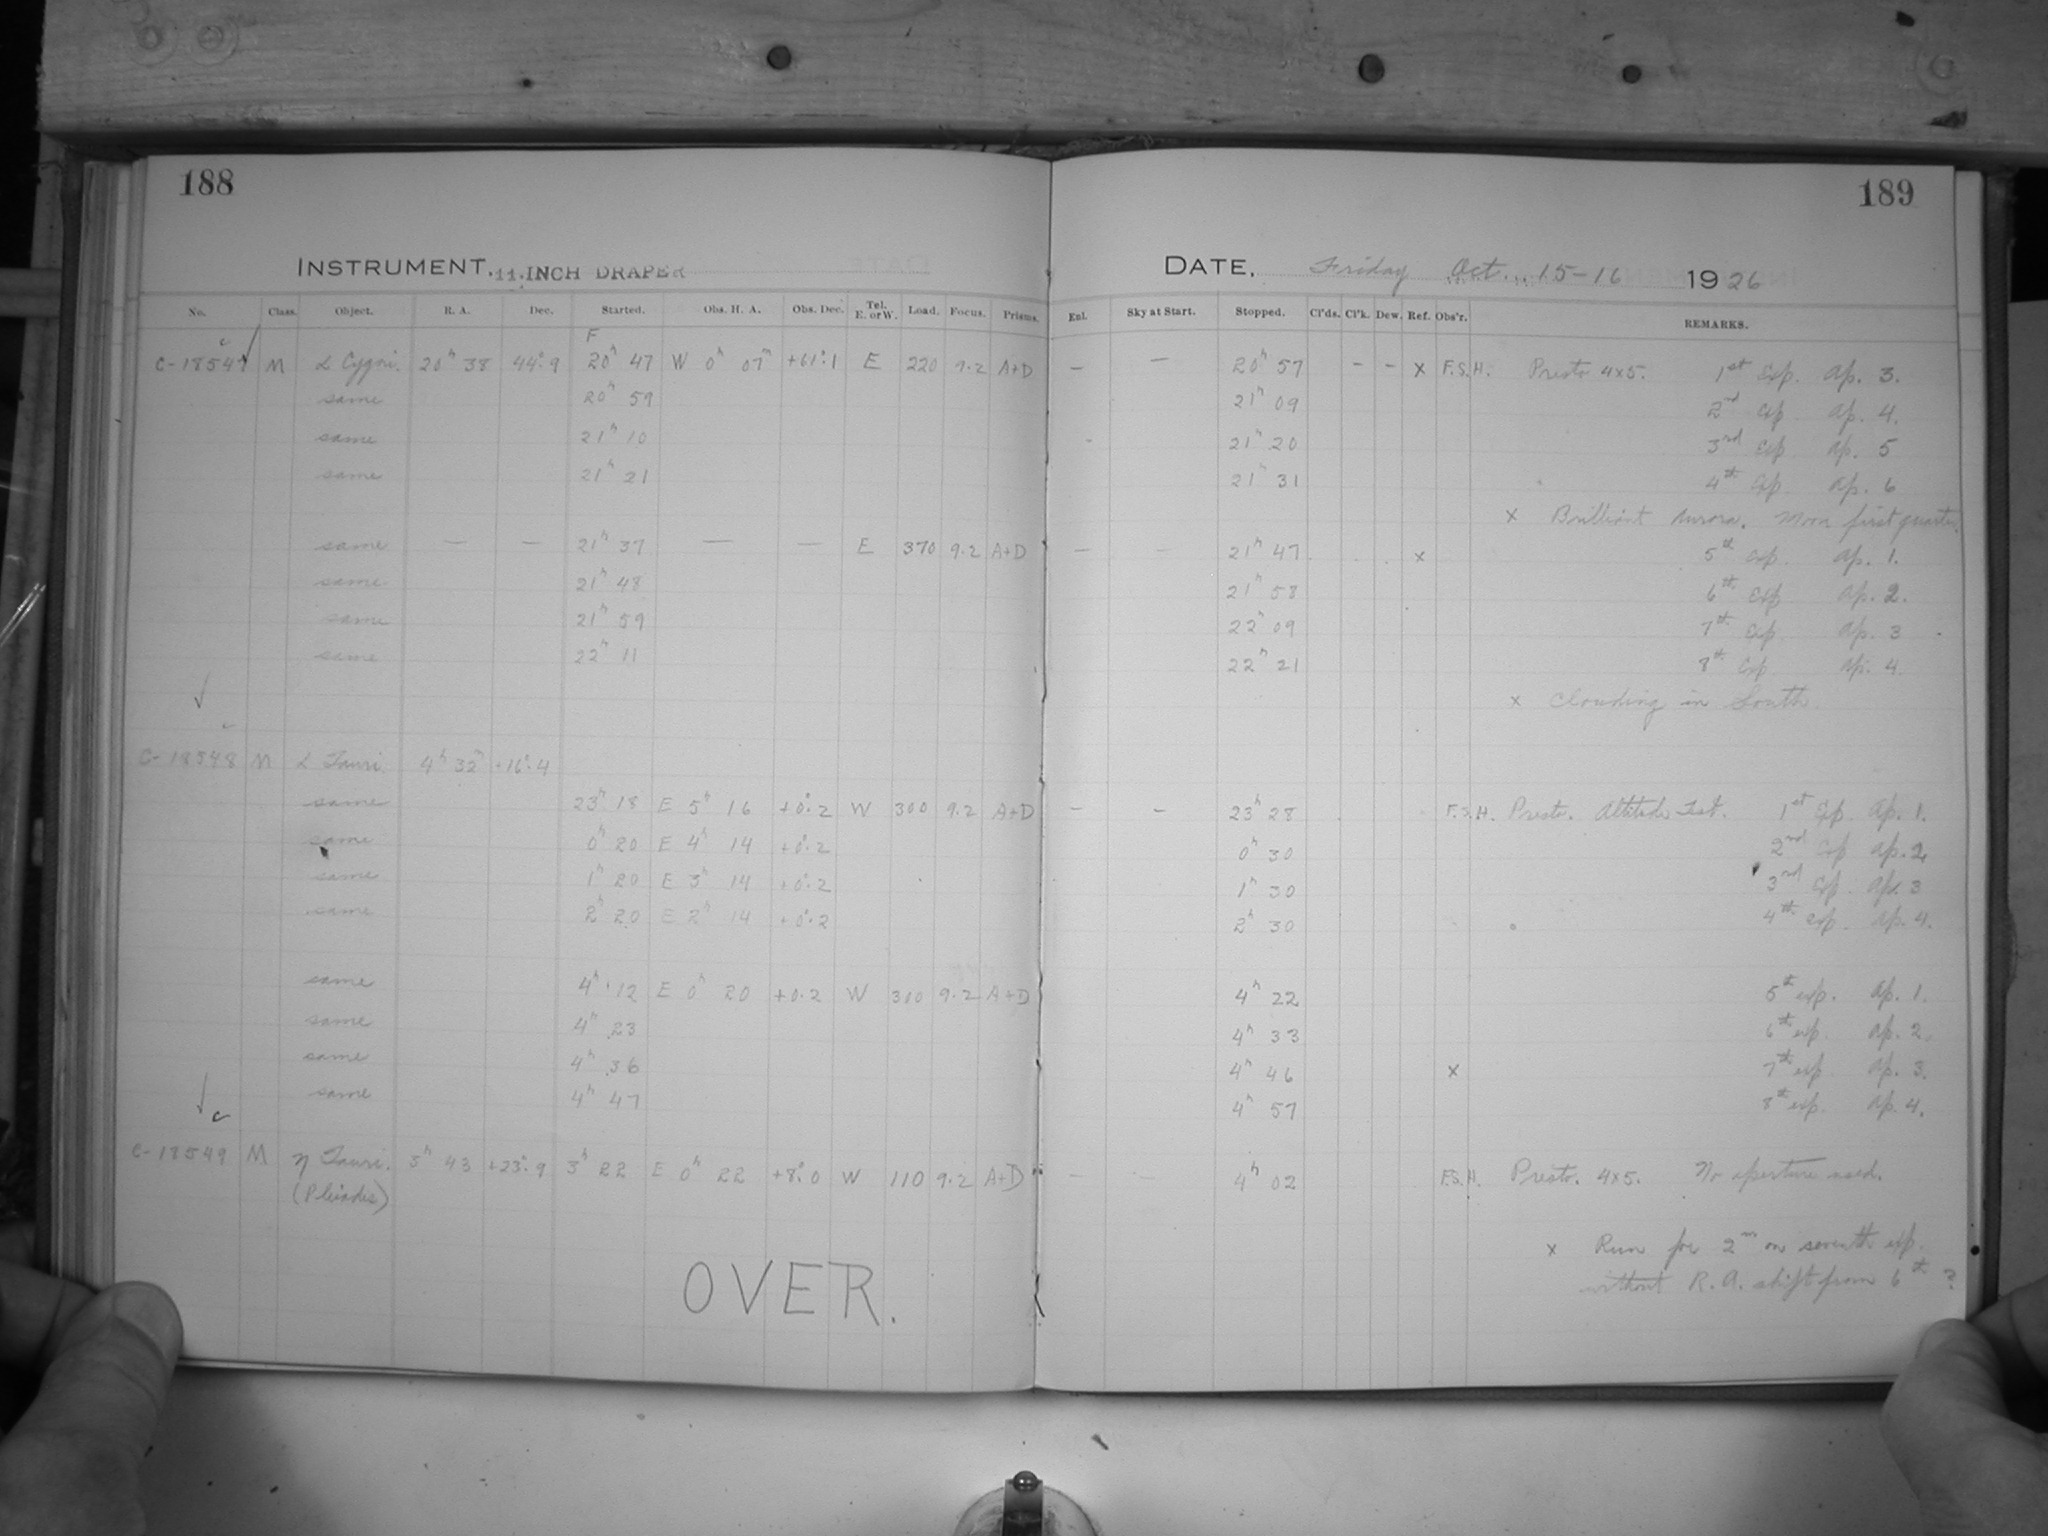 188
INSTRUMENT, 11 INCH DRAPER
No. Class. Object. R. A. Dec. Started. Obs. H. A. Obs. Dec. Tel. E. or W. Load. Focus. Prisms.
F
C-18547 M α Cygni. 20h 38 44°.9 20h 47 W 0h 07m +61°.1 E 220 9.2 A+D
same 20h 59
same 21h 10
same 21h 21
same — — 21h 37 — — E 370 9.2 A+D
same 21h 48
same 21h 59
same 22h 11
C-18548 M α Tauri. 4h 32m +16°.4
same 23h 18 E 5h 16 +0°.2 W 300 9.2 A+D
same 0h 20 E 4h 14 +0°.2
same 1h 20 E 3h 14 +0°.2
same 2h 20 E 2h 14 +0°.2
same 4h 12 E 0h 20 +0.2 W 310 9.2 A+D
same 4h 23
same 4h 36
same 4h 47
C-18549 M η Tauri. 3h 43 +23°.9 3h 22 E 0h 22 +8°.0 W 110 9.2 A+D
(Pleiades)
OVER.
189
DATE, Friday Oct. 15-16 1926
Enl. Sky at Start. Stopped. Cl'ds. Cl'k. Dew. Ref. Obs'r. REMARKS.
— — 20h 57 - - x F.S.H. Presto 4x5. 1st Exp. Ap. 3.
21h 09 2nd Exp. Ap. 4.
21h 20 3rd Exp. Ap. 5
21h 31 4th Exp. Ap. 6
x Brilliant Aurora. Moon first quarter.
— — 21h 47 x 5th Exp. Ap. 1.
21h 58 6th Exp Ap. 2.
22h 09 7th Exp. Ap. 3
22h 21 8th Exp Ap. 4.
x Clouding in South
— — 23h 28 F.S.H. Presto. Altitude Test. 1st Exp. Ap. 1.
0h 30 2nd Exp Ap. 2
1h 30 3rd Exp. Ap. 3
2h 30 4th exp. Ap. 4.
4h 22 5th exp. Ap. 1.
4h 33 6th exp. Ap. 2.
4h 46 x 7th exp. Ap. 3.
4h 57 8th exp. Ap. 4.
- - 4h 02 F.S.H. Presto. 4x5. No aperture used.
x Run for 2m on seventh exp.
without R.A. shift from 6th ?